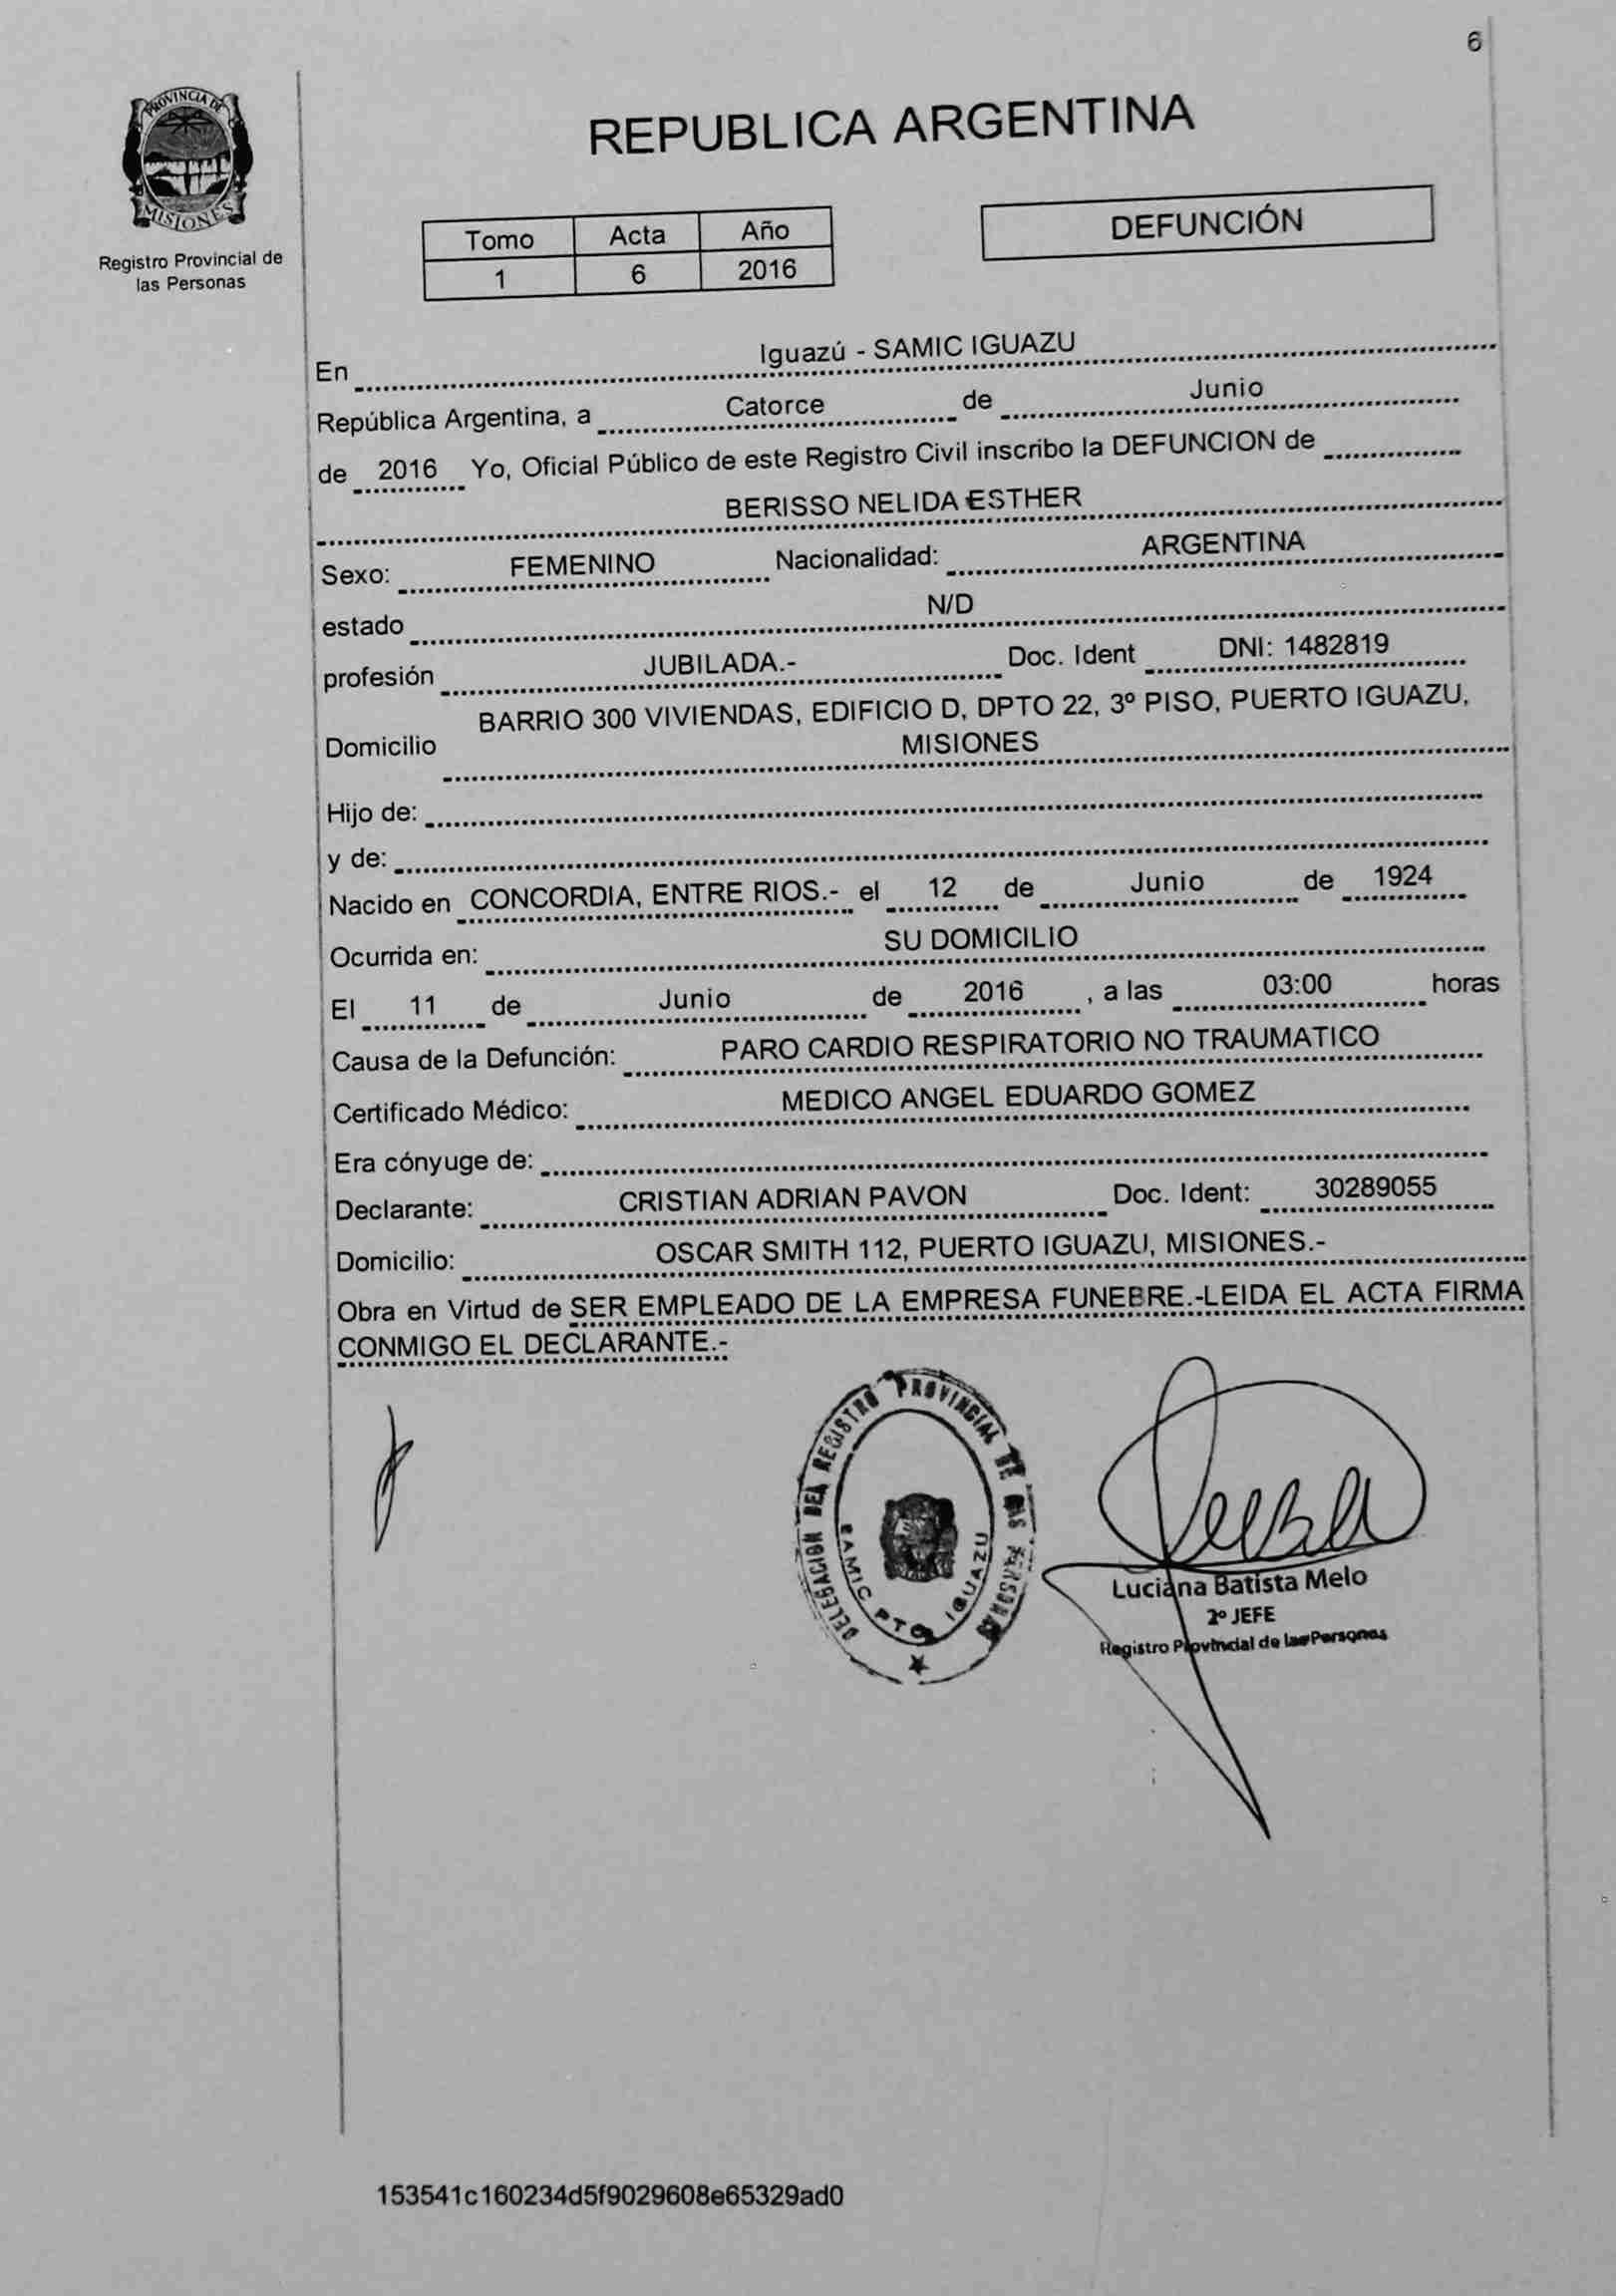 6
PROVINCIA DE
MISIONES
Registro Provincial de
las Personas
REPUBLICA ARGENTINA
Tomo Acta Año
1 6 2016
DEFUNCIÓN
En Iguazú - SAMIC IGUAZU
República Argentina, a Catorce de Junio
de 2016 Yo, Oficial Público de este Registro Civil inscribo la DEFUNCION de
BERISSO NELIDA ESTHER
Sexo: FEMENINO Nacionalidad: ARGENTINA
estado N/D
profesión JUBILADA.- Doc. Ident DNI: 1482819
BARRIO 300 VIVIENDAS, EDIFICIO D, DPTO 22, 3º PISO, PUERTO IGUAZU,
Domicilio MISIONES
Hijo de:
y de:
Nacido en CONCORDIA, ENTRE RIOS.- el 12 de Junio de 1924
Ocurrida en: SU DOMICILIO
El 11 de Junio de 2016 , a las 03:00 horas
Causa de la Defunción: PARO CARDIO RESPIRATORIO NO TRAUMATICO
Certificado Médico: MEDICO ANGEL EDUARDO GOMEZ
Era cónyuge de:
Declarante: CRISTIAN ADRIAN PAVON Doc. Ident: 30289055
Domicilio: OSCAR SMITH 112, PUERTO IGUAZU, MISIONES.-
Obra en Virtud de SER EMPLEADO DE LA EMPRESA FUNEBRE.-LEIDA EL ACTA FIRMA
CONMIGO EL DECLARANTE.-
DELEGACION DEL REGISTRO PROVINCIAL DE LAS PERSONAS
SAMIC PTO IGUAZU
Luciana Batista Melo
2º JEFE
Registro Provincial de las Personas
153541c160234d5f9029608e65329ad0